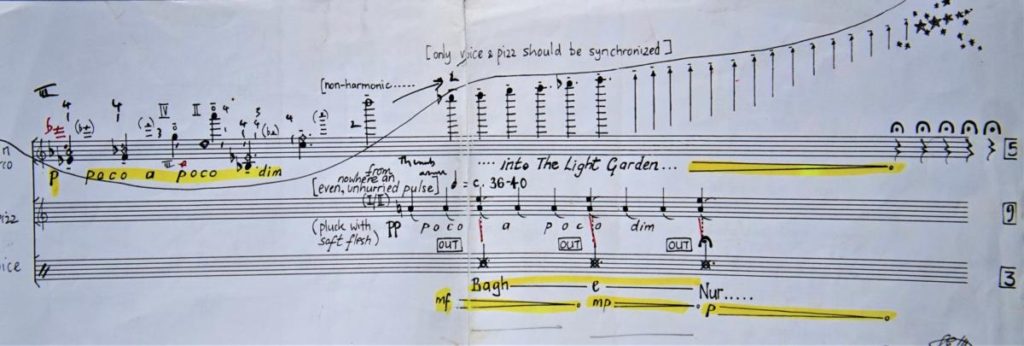 [only voice & pizz should be synchronized]
[non-harmonic.....
IV II
p poco a poco dim
.... into The Light Garden...
5
from nowhere an
[even, unhurried pulse] = c. 36-40
(I/II)
pizz
(pluck with soft flesh) PP poco a poco dim
9
OUT OUT OUT
voice
3
Bagh e Nur.....
mf mp p